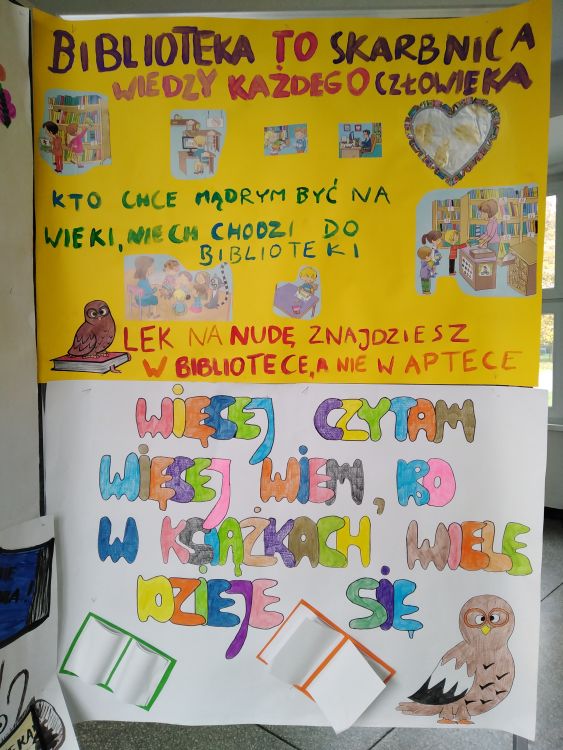 BIBLIOTEKA TO SKARBNICA
WIEDZY KAŻDEGO CZŁOWIEKA
KTO CHCE MĄDRYM BYĆ NA
WIEKI, NIECH CHODZI DO
BIBLIOTEKI
LEK NA NUDĘ ZNAJDZIESZ
W BIBLIOTECE, A NIE W APTECE
WIĘCEJ CZYTAM
WIĘCEJ WIEM, BO
W KSIĄŻKACH WIELE
DZIEJE SIĘ